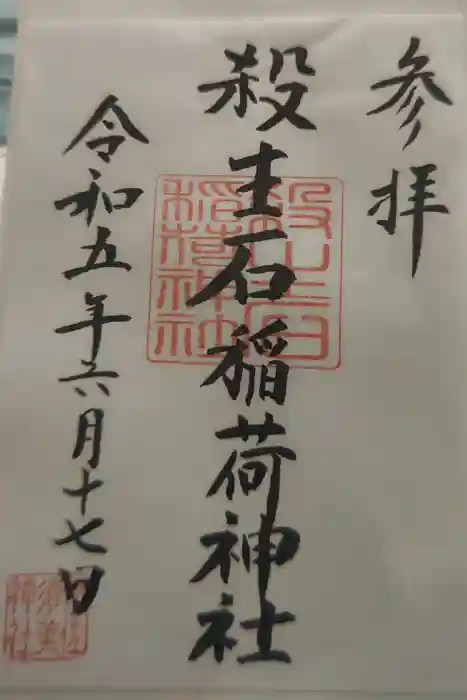 参拝
殺生石稲荷神社
殺生石
稲荷神社
令和五年六月十七日
神社